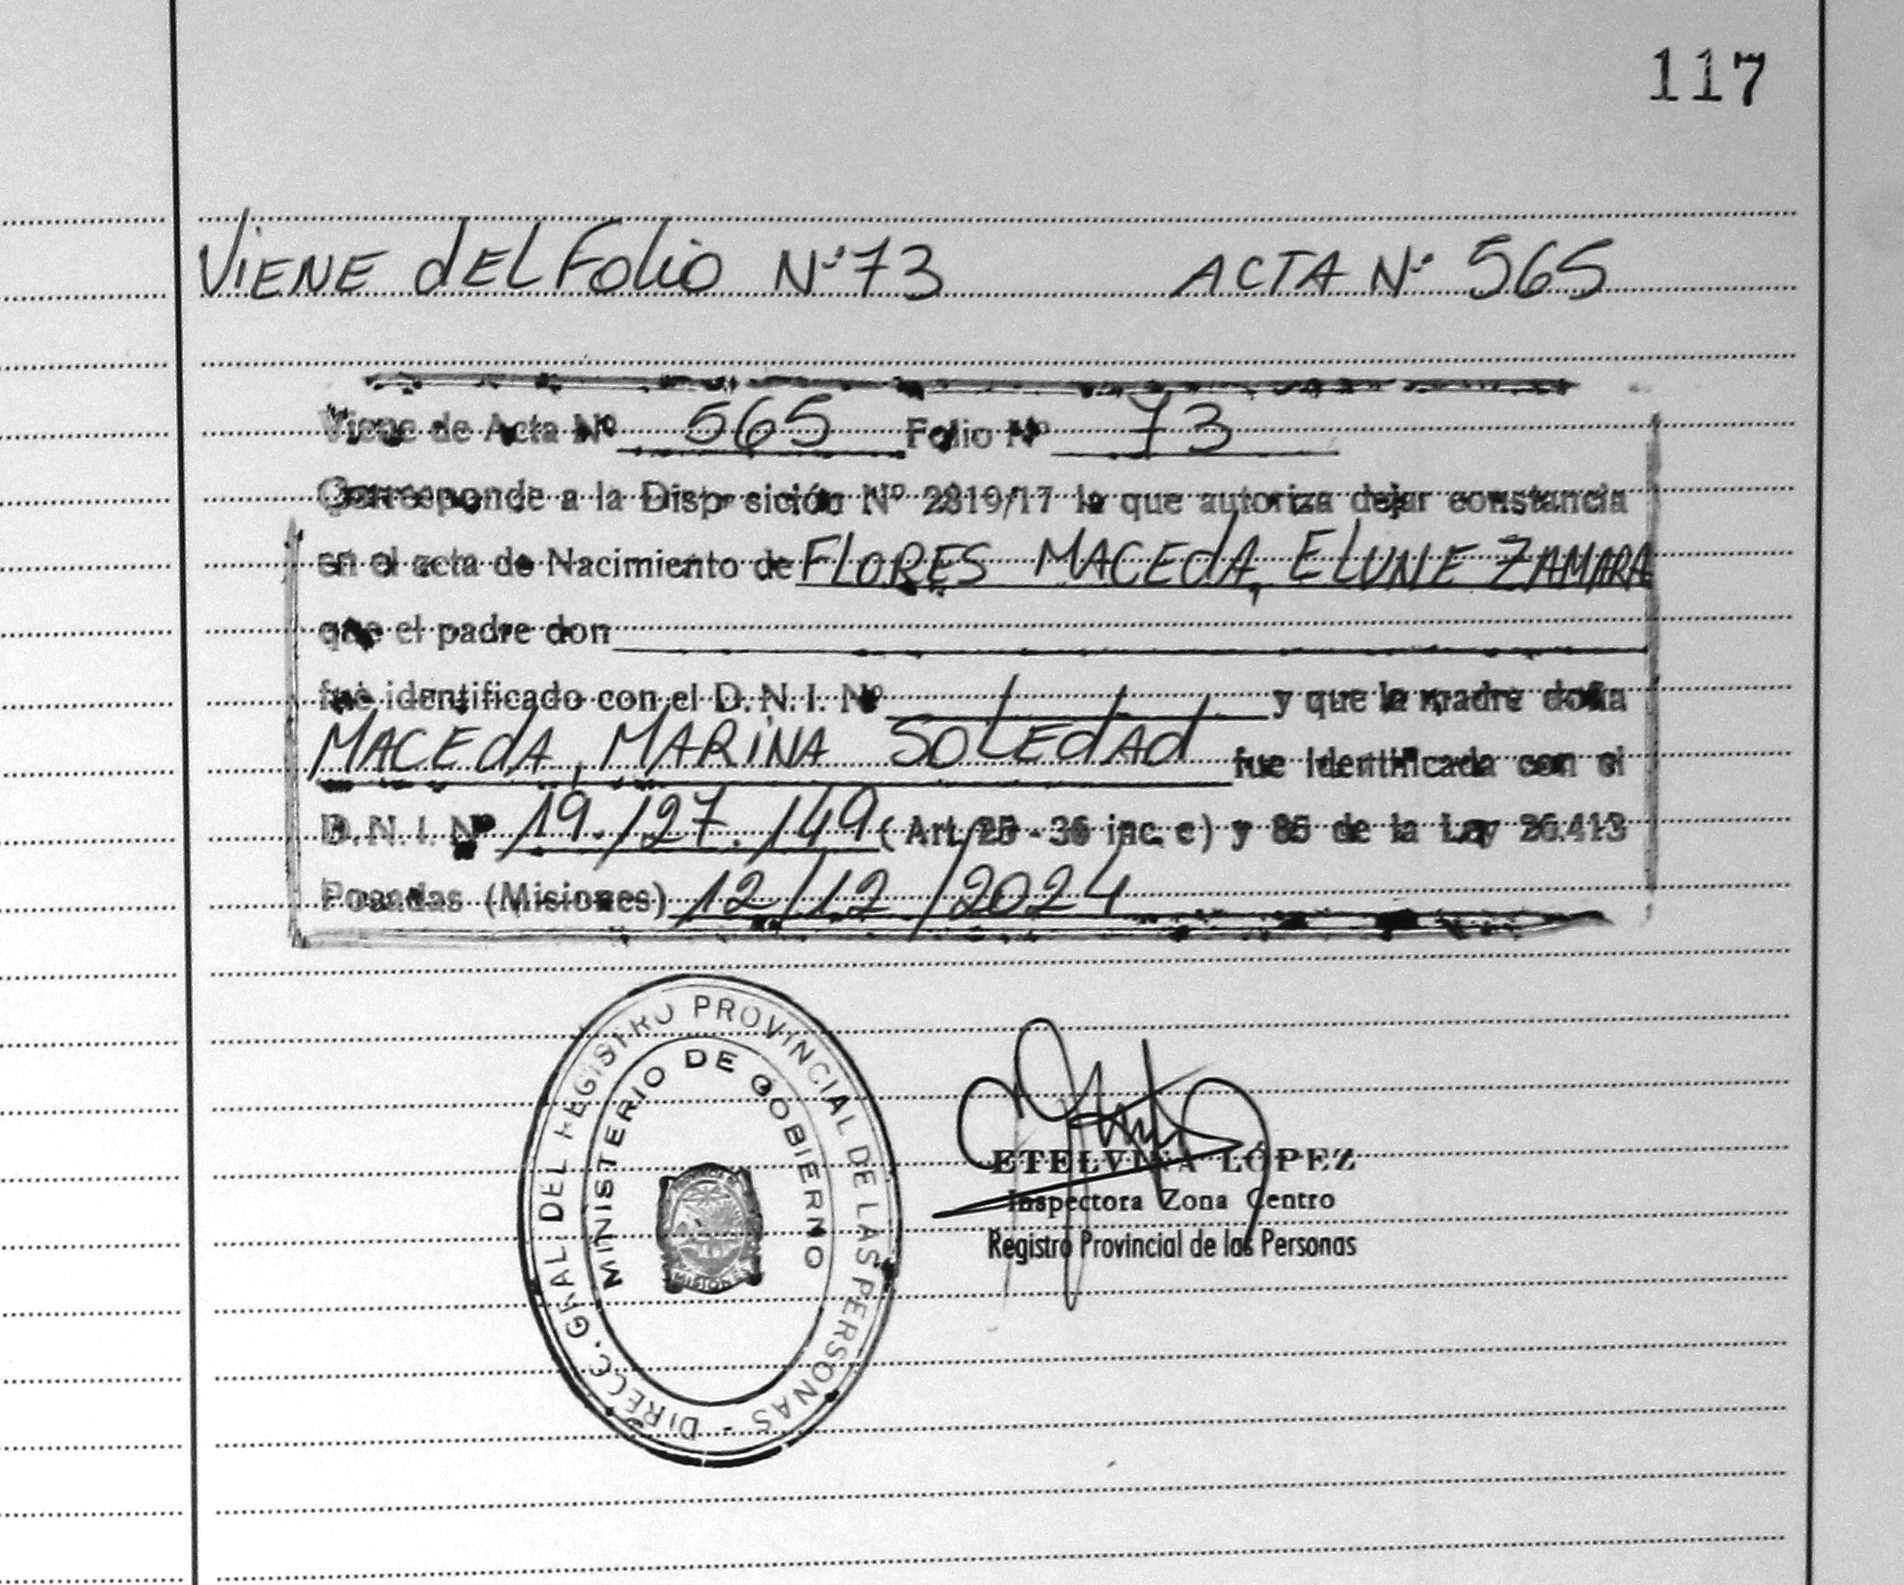 117
VIENE dEL FOLIO Nº 73 ACTA Nº 565
Viene de Acta Nº 565 Folio Nº 73
Corresponde a la Disposición Nº 2819/17 la que autoriza dejar constancia
en el acta de Nacimiento de FLORES MACEdA, ELUNE ZAMARA
que el padre don
fue identificado con el D.N.I. Nº y que la madre doña
MACEdA, MARINA SOLEdAd fue identificada con el
D.N.I. Nº 19.127.149 (Art. 25 - 36 inc. c) y 85 de la Ley 26.413
Posadas (Misiones) 12/12/2024
DIRECC. GRAL DEL REGISTRO PROVINCIAL DE LAS PERSONAS -
MINISTERIO DE GOBIERNO
MISIONES
ETELVINA LÓPEZ
Inspectora Zona Centro
Registro Provincial de las Personas